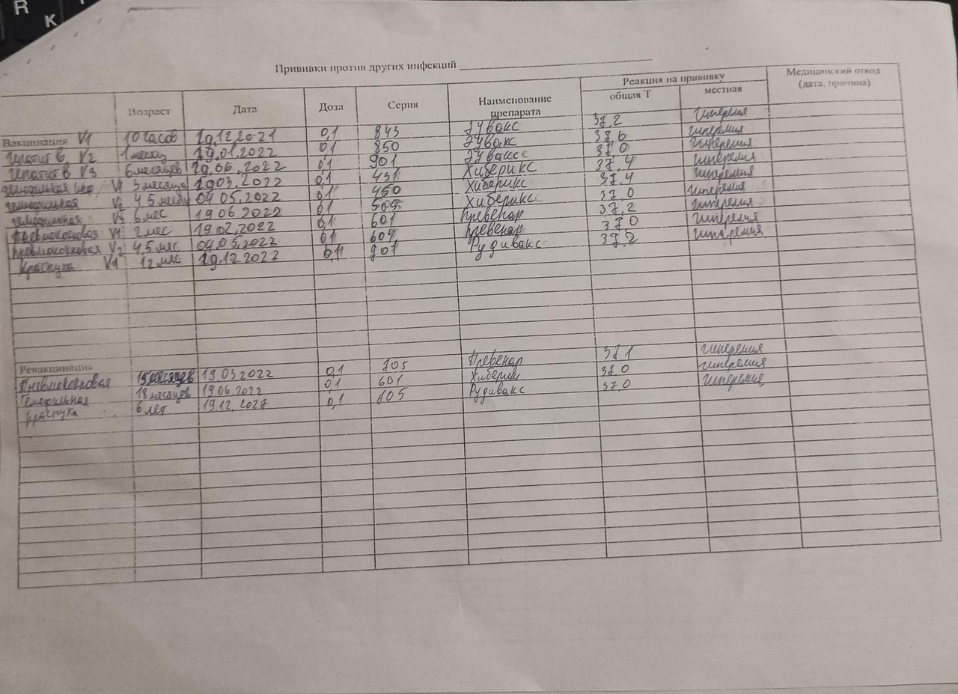 R
K
Прививки против других инфекций
Возраст Дата Доза Серия Наименование препарата Реакция на прививку общая Т местная Медицинский отвод (дата, причина)
Вакцинация V1 10 часов 19.12.2021 0,1 845 Эувакс 37,2 гиперемия
гепатит В V2 1 месяц 19.01.2022 0,1 850 Эувакс 37,6 гиперемия
гепатит В V3 6 месяцев 19.06.2022 0,1 901 Эувакс 37,0 гиперемия
V1 3 месяца 19.03.2022 0,1 431 Хиберикс 37,4 гиперемия
V2 4,5 04.05.2022 0,1 450 Хиберикс 37,4 гиперемия
V3 6 мес 19.06.2022 0,1 505 Хиберикс 37,0 гиперемия
Пневмококковая V1 2 мес 19.02.2022 0,1 601 Превенар 37,2 гиперемия
Пневмококковая V2 4,5 мес 04.05.2022 0,1 604 Превенар 37,0 гиперемия
Краснуха V1 12 мес 19.12.2022 0,1 901 Рудивакс 37,2 гиперемия
Ревакцинация
Пневмококковая 15 месяцев 19.03.2022 0,1 705 Превенар 37,1 гиперемия
18 месяцев 19.06.2022 0,1 601 37,0 гиперемия
Краснуха 6 лет 19.12.2027 0,1 805 Рудивакс 37,0 гиперемия